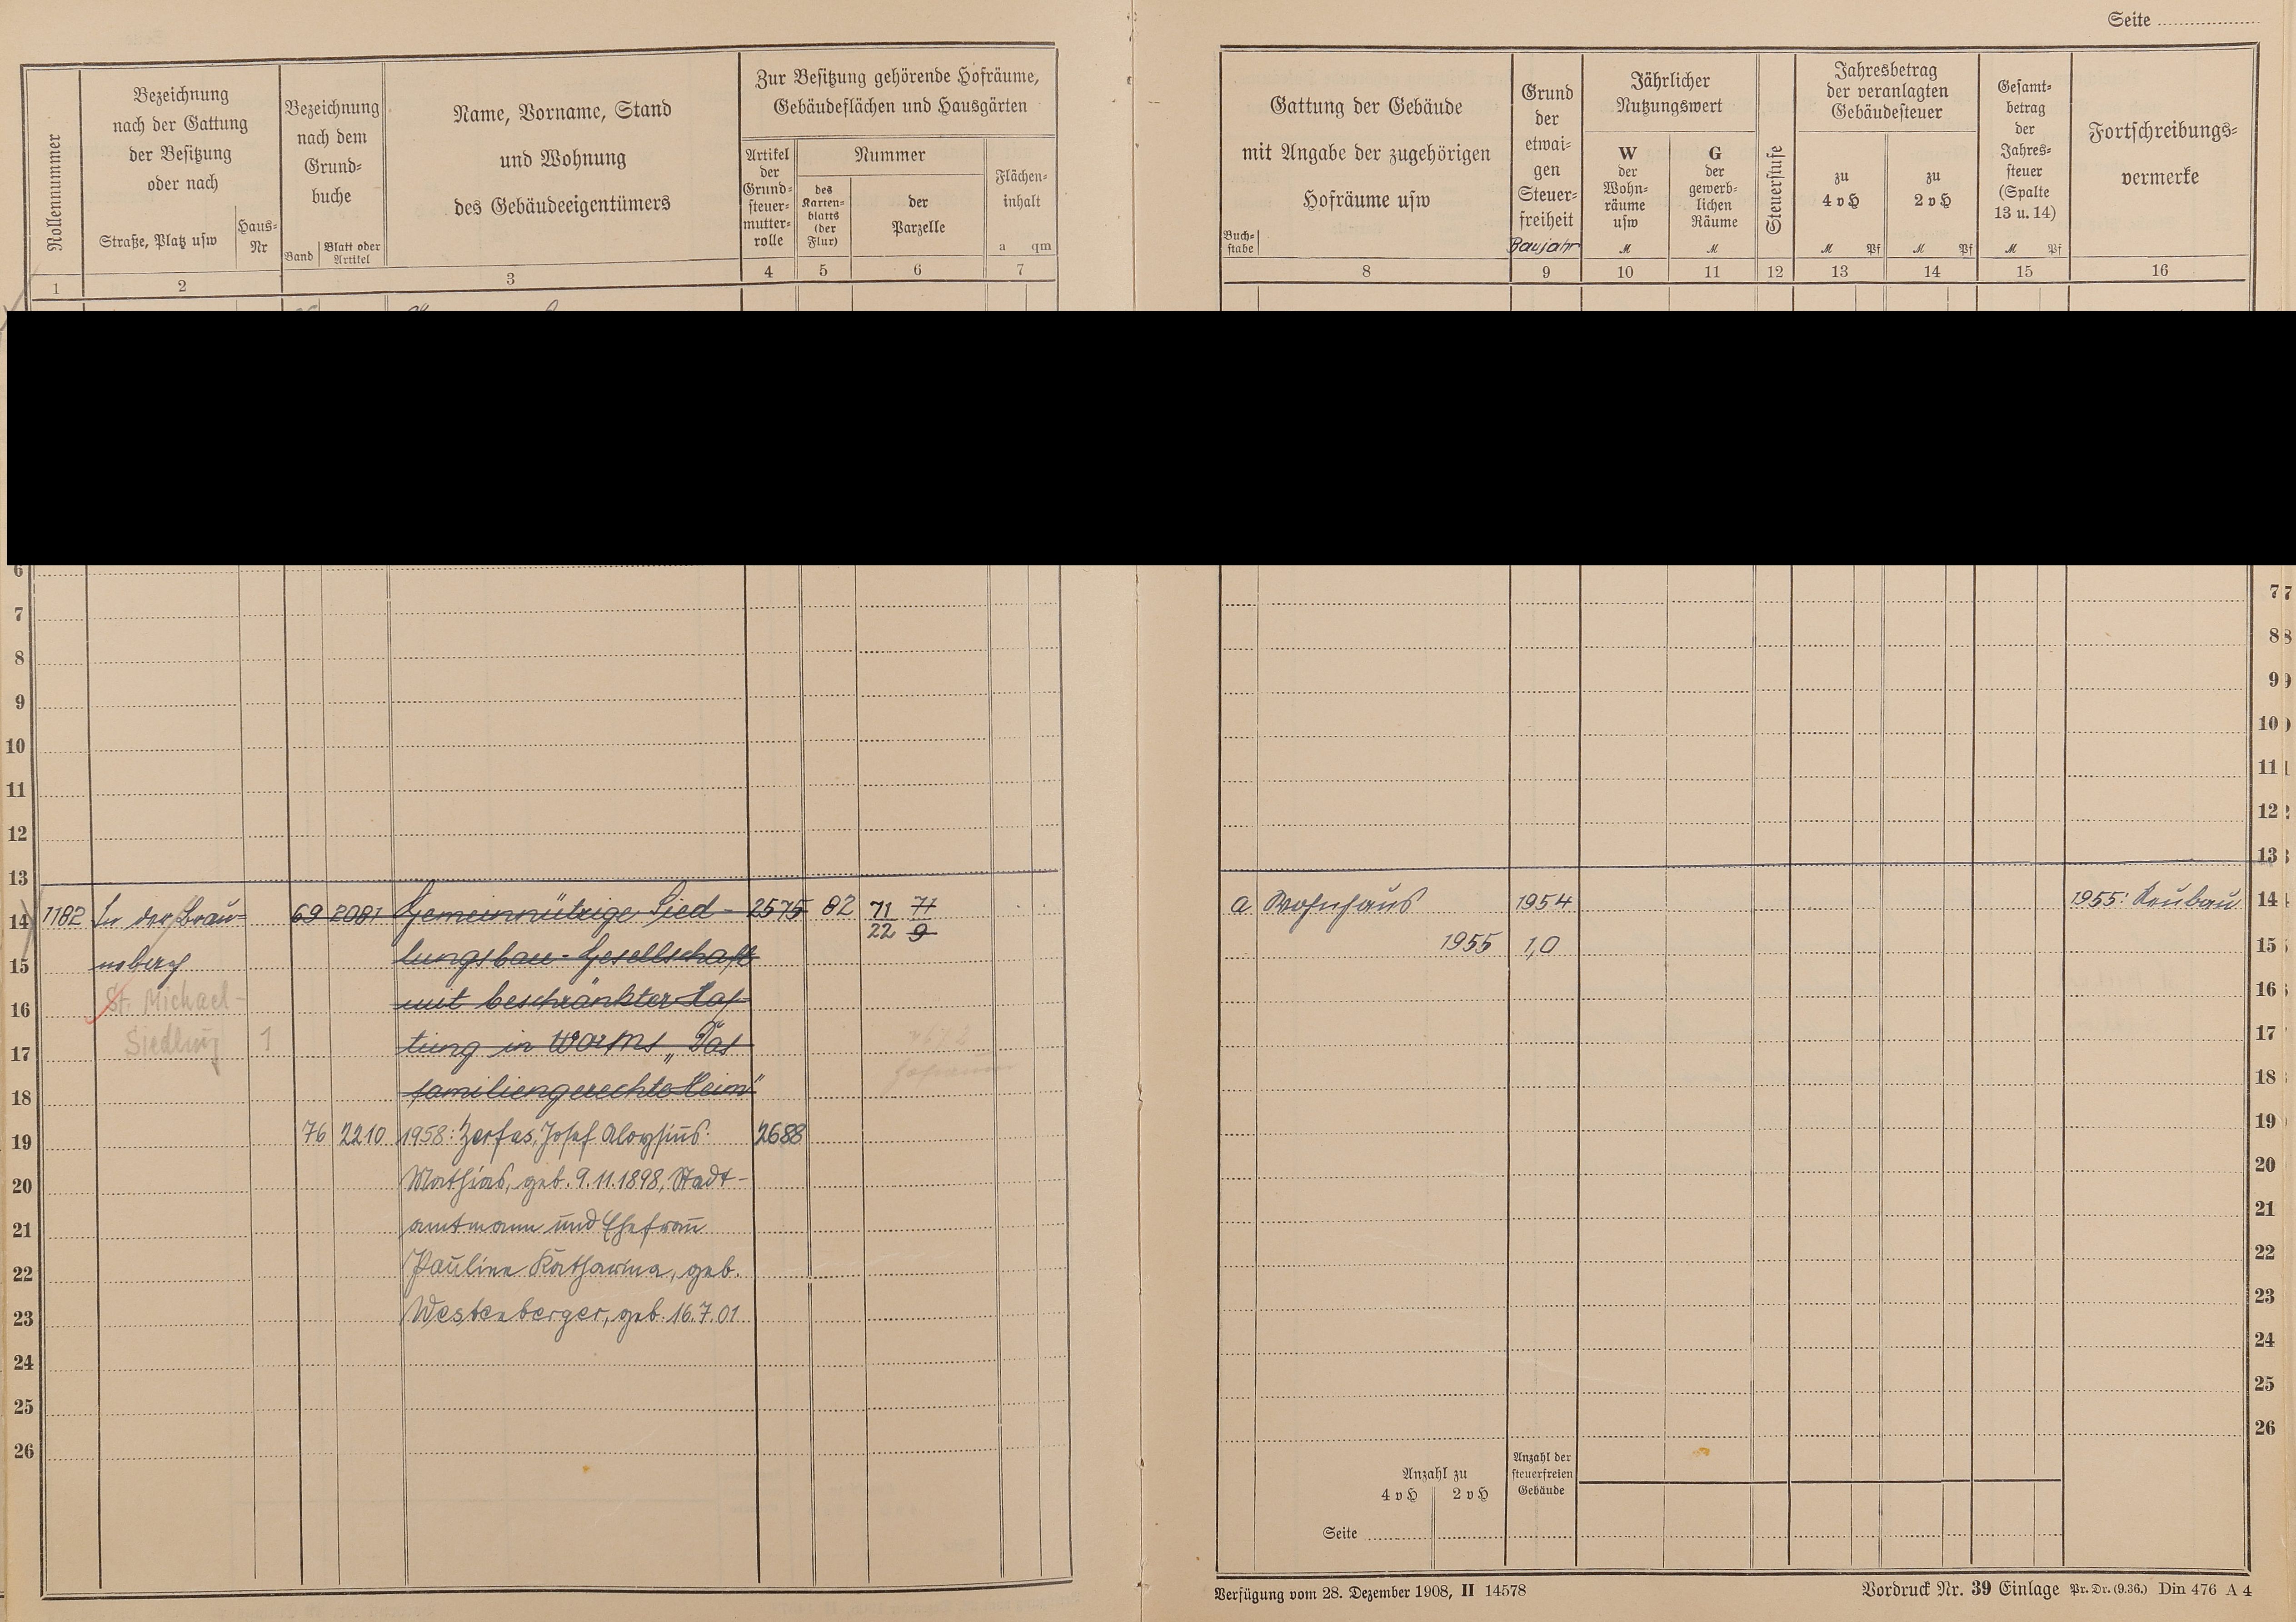 Seite
Rollennummer
Bezeichnung
nach der Gattung
der Besitzung
oder nach
Straße, Platz usw
Haus-
Nr
Bezeichnung
nach dem
Grund-
buche
Band
Blatt oder
Artikel
Name, Vorname, Stand
und Wohnung
des Gebäudeeigentümers
Zur Besitzung gehörende Hofräume,
Gebäudeflächen und Hausgärten
Artikel
der
Grund-
steuer-
mutter-
rolle
Nummer
des
Karten-
blatts
(der
Flur)
der
Parzelle
Flächen-
inhalt
a qm
1 2 3 4 5 6 7
Gattung der Gebäude
mit Angabe der zugehörigen
Hofräume usw
Buch-
stabe
Grund
der
etwai-
gen
Steuer-
freiheit
Baujahr
Jährlicher
Nutzungswert
W
der
Wohn-
räume
usw
M
G
der
gewerb-
lichen
Räume
M
Steuerstufe
Jahresbetrag
der veranlagten
Gebäudesteuer
zu
4 v H
M Pf
zu
2 v H
M Pf
Gesamt-
betrag
der
Jahres-
steuer
(Spalte
13 u. 14)
M Pf
Fortschreibungs-
vermerke
8 9 10 11 12 13 14 15 16
6
7 7
8 8
9 9
10 10
11 11
12 12
13 13
14 1182 In der Brau- 69 2081 Gemeinnützige Sied- 2575 82 71 71 a Wohnhaus 1954 1955: Neubau 14
22 9
15 neberg lungsbau-Gesellschaft 1955 1,0 15
16 St. Michael- mit beschränkter Haf- 16
17 Siedlung 1 tung in Worms „Das 17
18 familiengerechte Heim" 18
19 76 2210 1958: Zerfas, Josef Aloysius 2688 19
20 Mathias, geb. 9.11.1898, Stadt- 20
21 amtmann und Ehefrau 21
22 Pauline Katharina, geb. 22
23 Westenberger, geb. 16.7.01 23
24 24
25 25
26 26
Anzahl zu
4 v H 2 v H
Anzahl der
steuerfreien
Gebäude
Seite
Verfügung vom 28. Dezember 1908, II 14578
Vordruck Nr. 39 Einlage Pr. Dr. (9.36.) Din 476 A 4